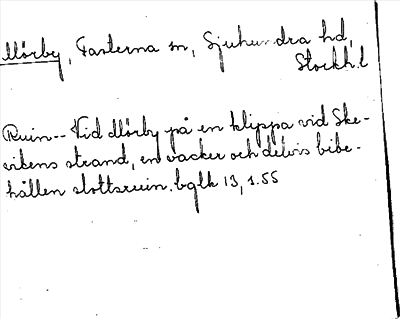 Mörby, Fasterna sn, Sjuhundra hd,
Stockh.l
Ruin-- Vid Mörby på en klippa vid Ske-
dvikens strand, en vacker och delvis bibe-
hållen slottsruin. bglk 13, s.55